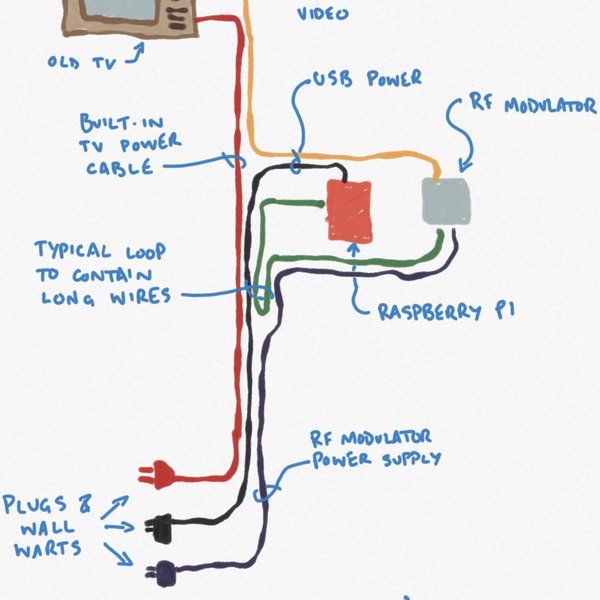 VIDEO
OLD TV
USB POWER
RF MODULATOR
BUILT-IN
TV POWER
CABLE
TYPICAL LOOP
TO CONTAIN
LONG WIRES
RASPBERRY PI
RF MODULATOR
POWER SUPPLY
PLUGS &
WALL
WARTS